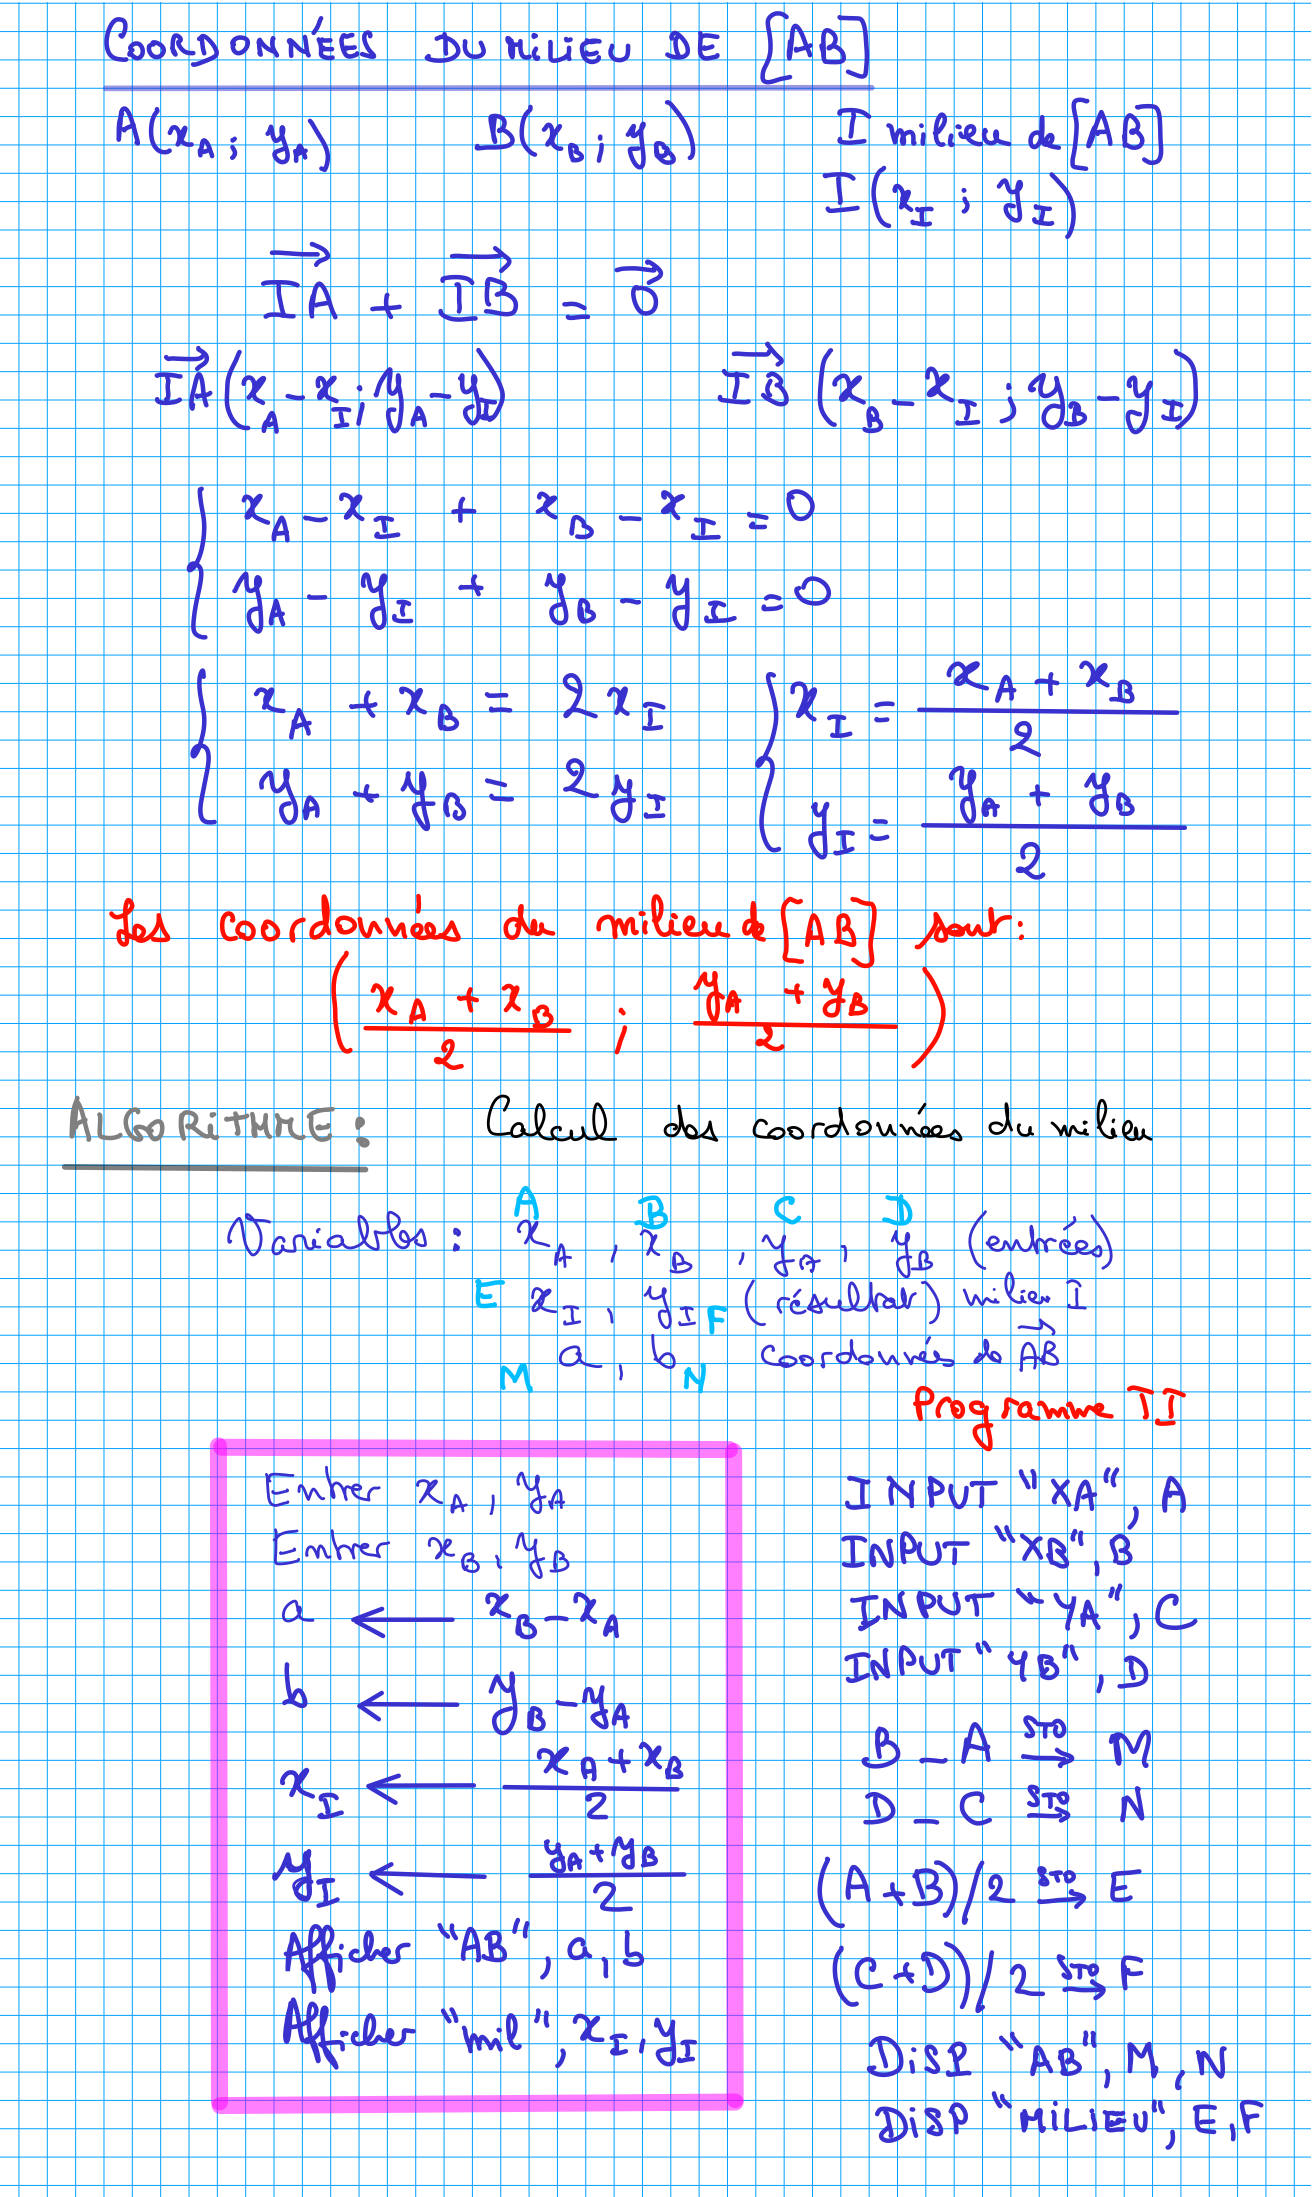 COORDONNÉES DU MILIEU DE [AB]
A(x_A ; y_A)    B(x_B ; y_B)    I milieu de [AB]
I(x_I ; y_I)
→IA + →IB = →0
→IA (x_A − x_I ; y_A − y_I)    →IB (x_B − x_I ; y_B − y_I)
{ x_A − x_I + x_B − x_I = 0
y_A − y_I + y_B − y_I = 0
{ x_A + x_B = 2x_I    { x_I = (x_A + x_B)/2
y_A + y_B = 2y_I    y_I = (y_A + y_B)/2
Les coordonnées du milieu de [AB] sont :
( (x_A + x_B)/2 ; (y_A + y_B)/2 )
ALGORITHME : Calcul des coordonnées du milieu
A B C D
Variables : x_A , x_B , y_A , y_B (entrées)
E x_I , y_I F (résultat) milieu I
M a , b N coordonnées de →AB
Programme TI
Entrer x_A , y_A
Entrer x_B , y_B
a ← x_B − x_A
b ← y_B − y_A
x_I ← (x_A + x_B)/2
y_I ← (y_A + y_B)/2
Afficher "AB", a, b
Afficher "mil", x_I, y_I
INPUT "XA", A
INPUT "XB", B
INPUT "YA", C
INPUT "YB", D
B − A STO→ M
D − C STO→ N
(A + B)/2 STO→ E
(C + D)/2 STO→ F
DISP "AB", M, N
DISP "MILIEU", E, F